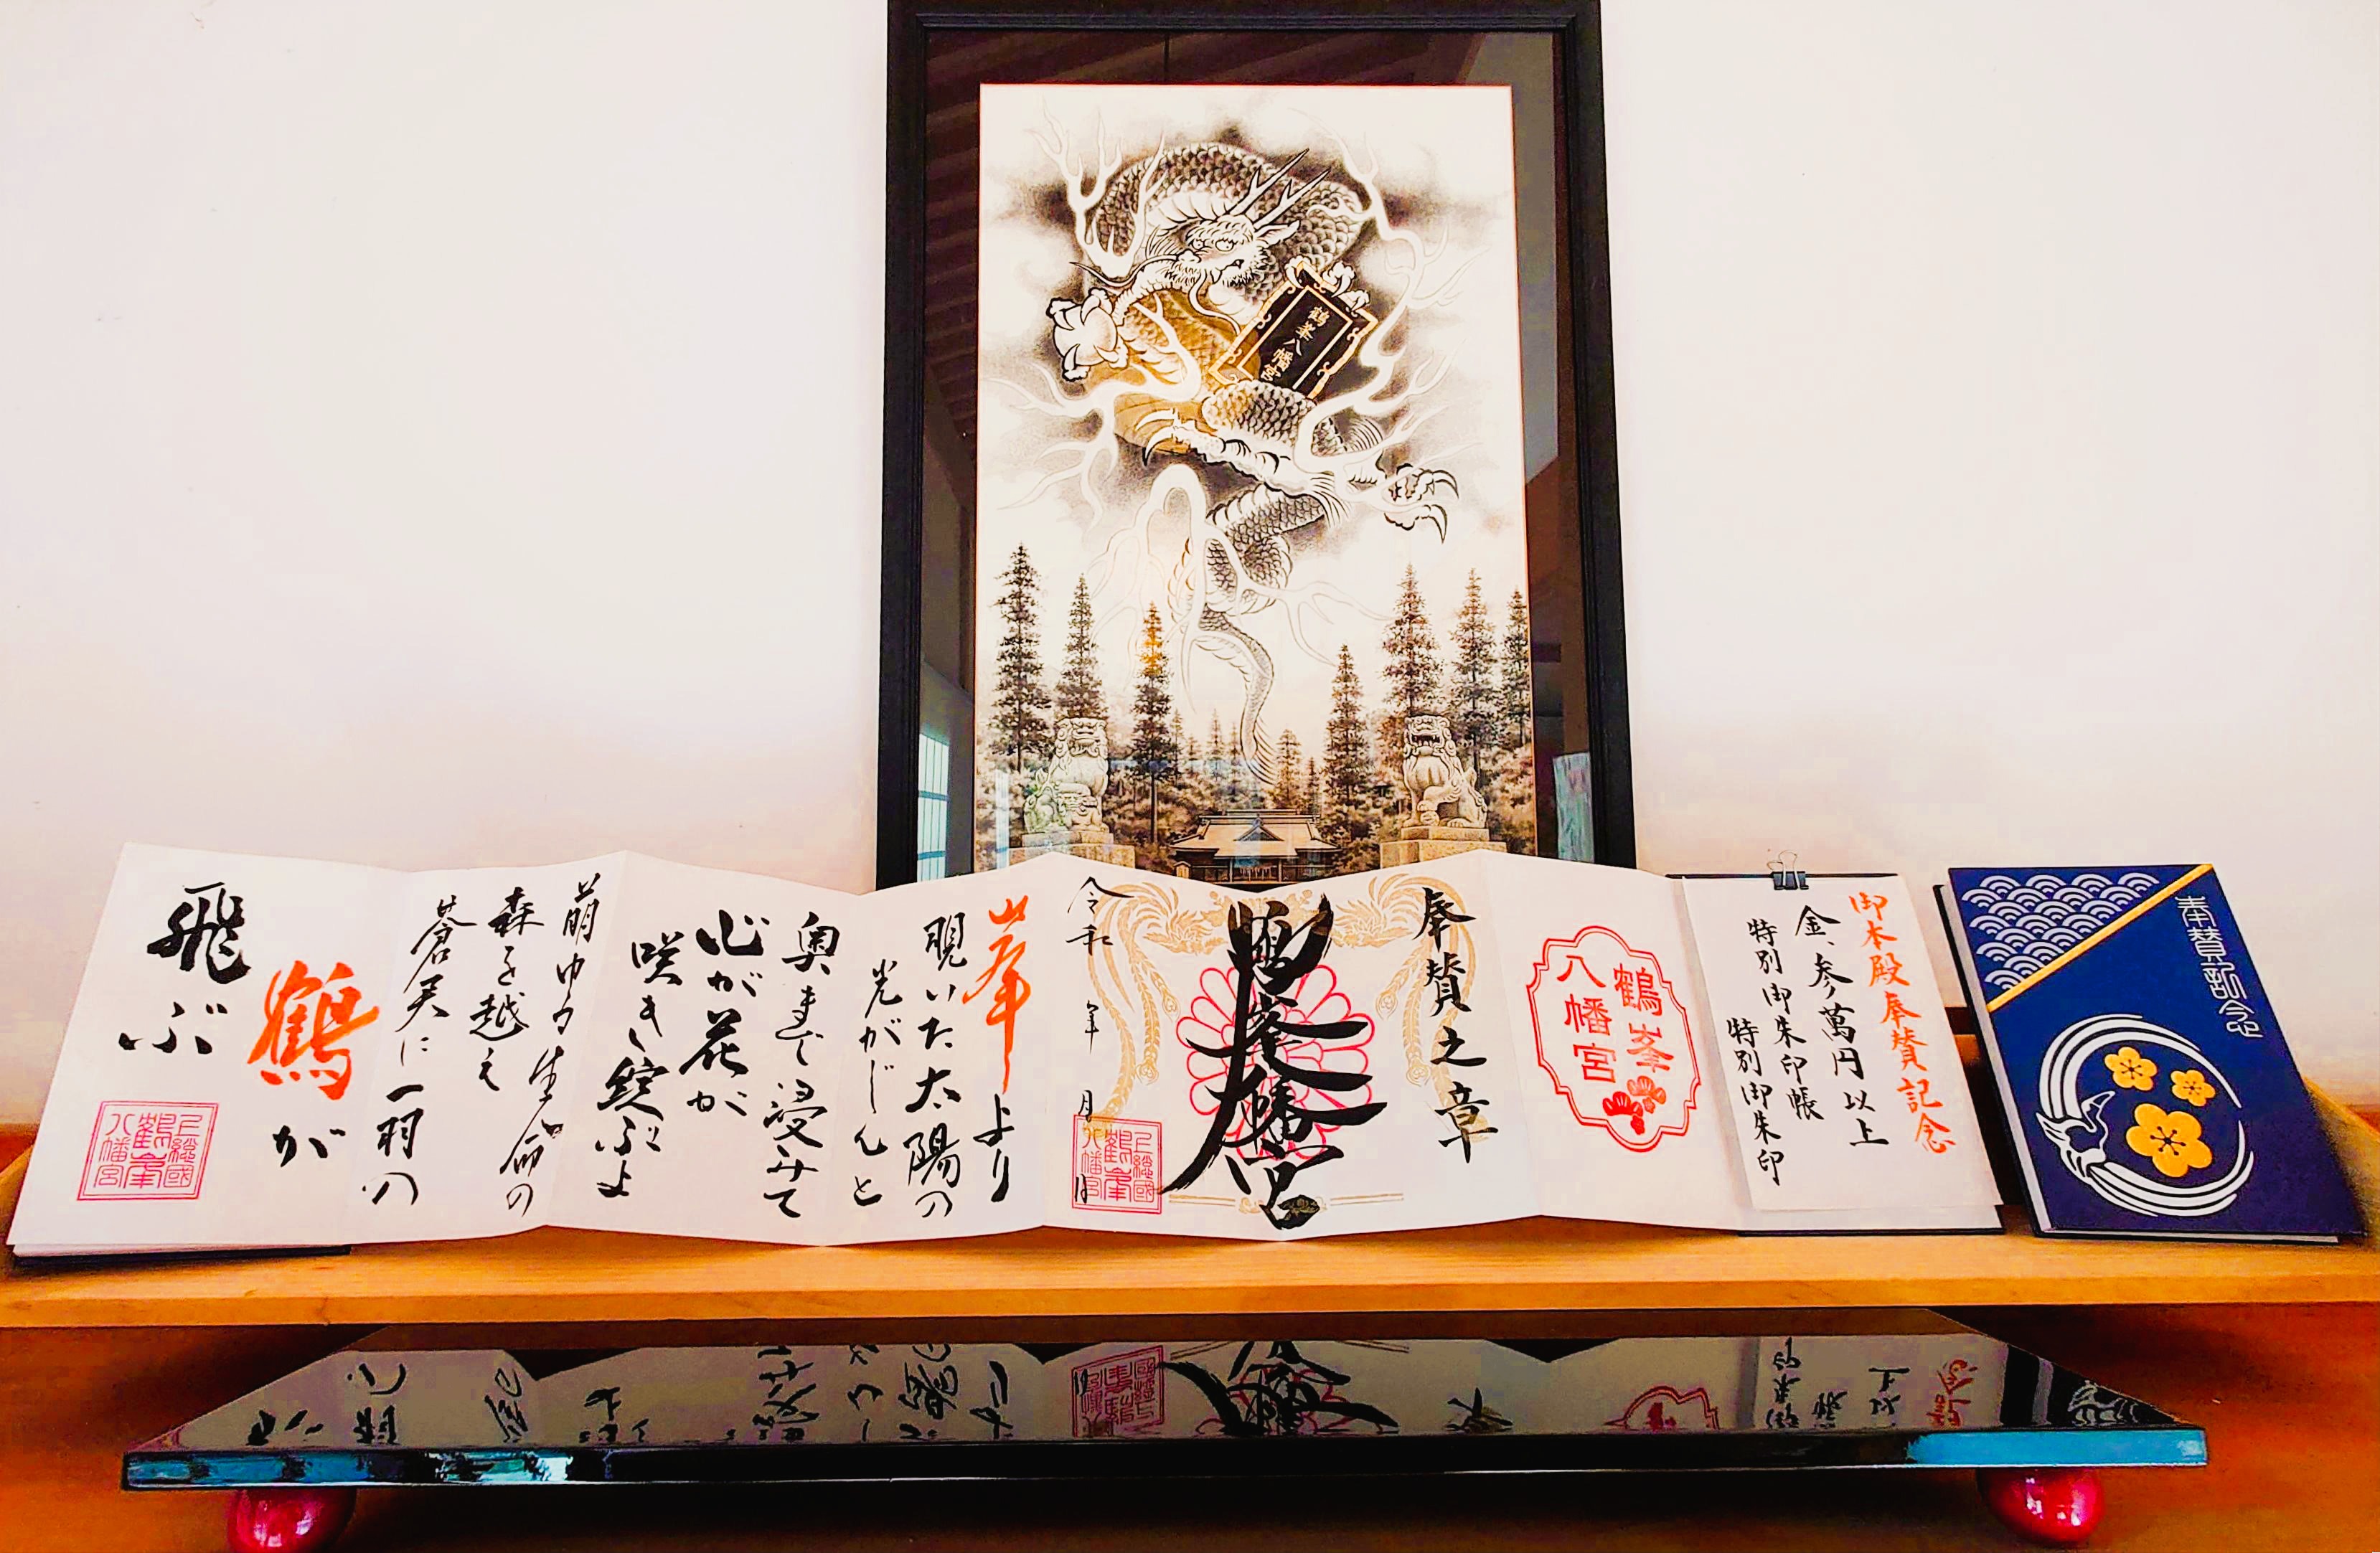 鶴峯八幡宮
奉賛記念
御本殿奉賛記念
金、参萬円以上
特別御朱印帳
特別御朱印
鶴峯
八幡宮
奉賛之章
鶴峯八幡宮
令和 年 月 日
上総國
鶴峯
八幡宮
峯より
覗いた太陽の
光がじんと
奥まで浸みて
心が花が
咲き綻ぶよ
萌ゆる生命の
森を越え
蒼天に一羽の
鶴が
飛ぶ
上総國
鶴峯
八幡宮